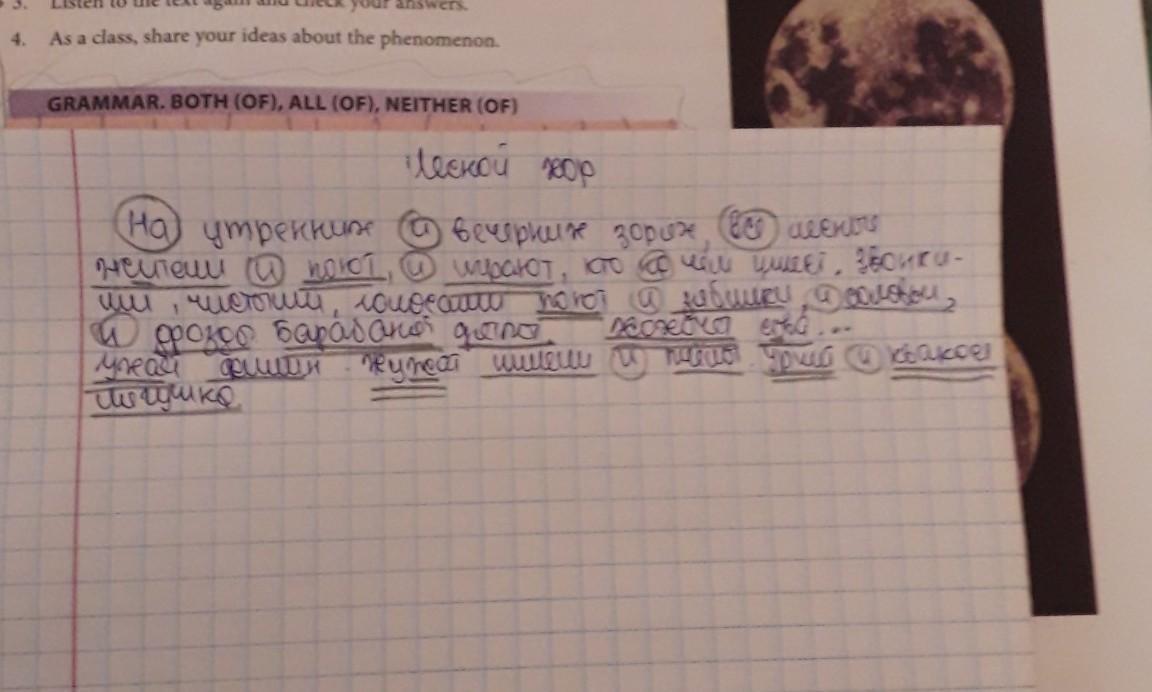 3. Listen to the text again and check your answers.
4. As a class, share your ideas about the phenomenon.
GRAMMAR. BOTH (OF), ALL (OF), NEITHER (OF)
Лесной хор
На утренних и вечерних зорях, все лесные
жители и поют, и играют, кто на чём умеет. Звонки-
ми, чистыми, голосами поют и зяблики, и соловьи,
и дрозд барабанит дятел
филин жужжат шмели и пчёлы и квакает
лягушка